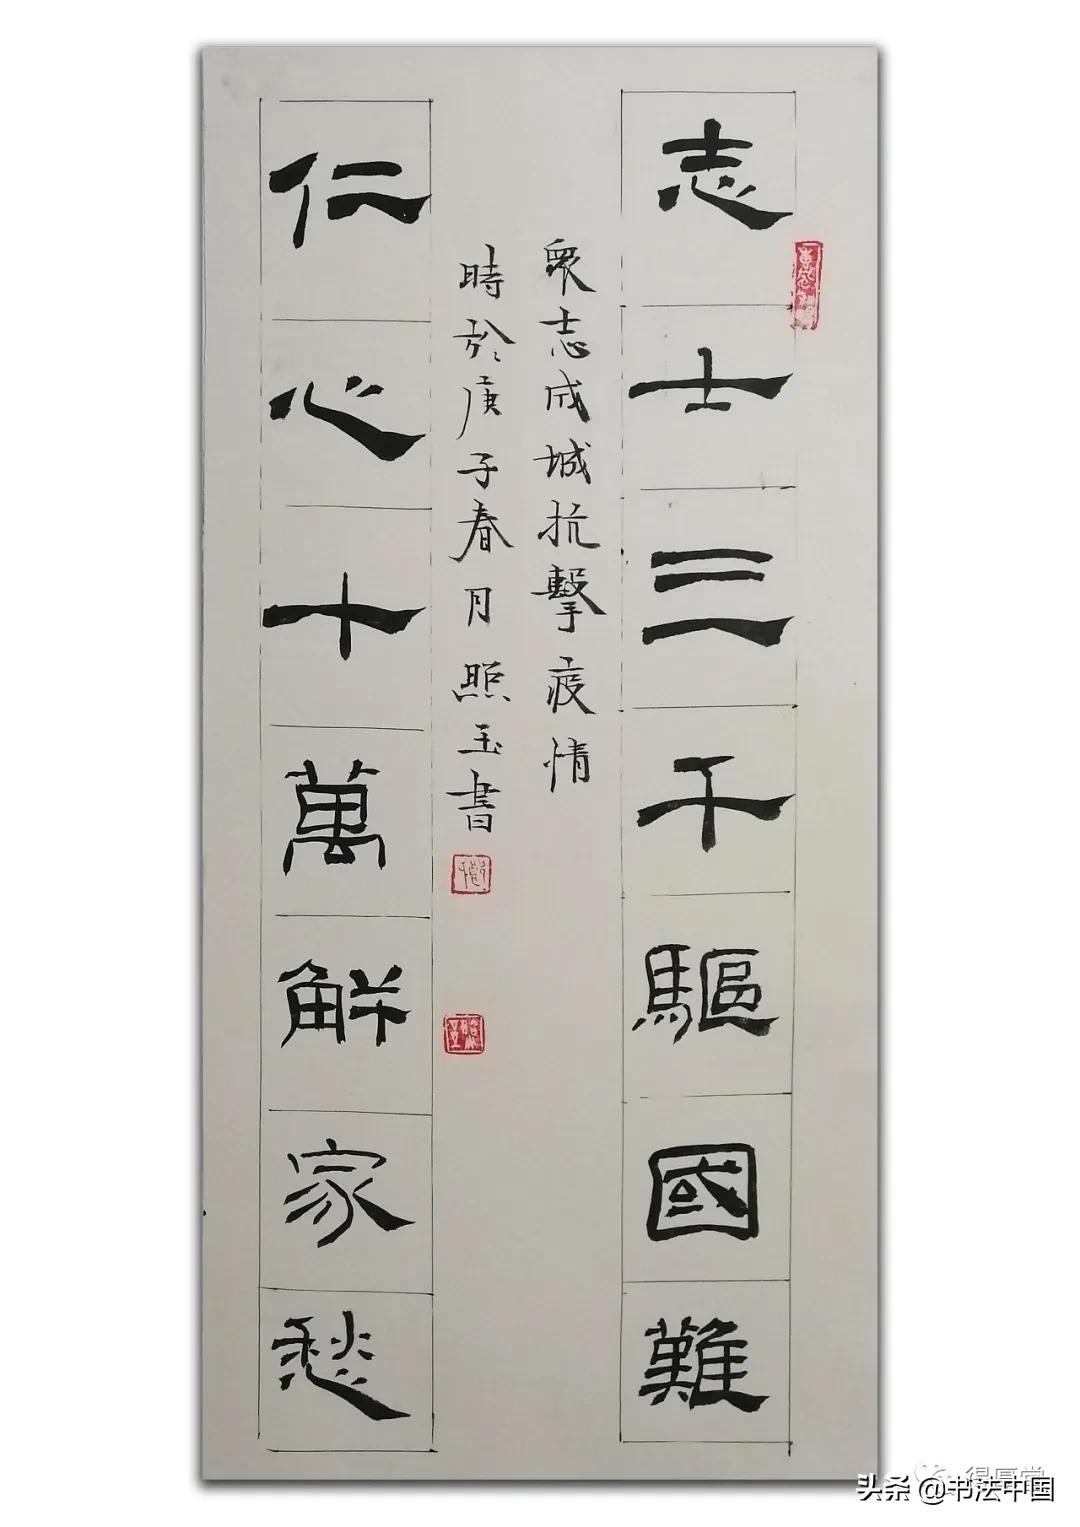 志士三千驅國難
眾志成城抗擊疫情
時於庚子春月照玉書
仁心十萬解家愁
得厚堂
头条 @书法中国